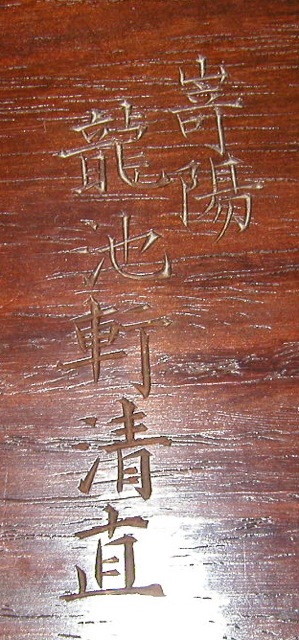 嵜陽
龍池軒清直